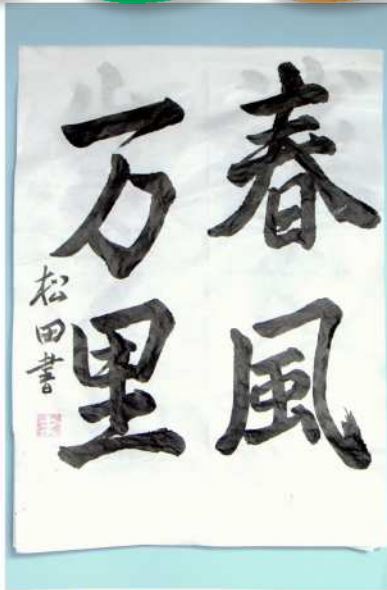 春風
万里
松田書